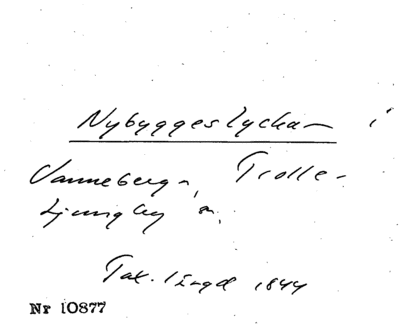 Nybyggeslyckan i
Vanneberga, Trolle-
Ljungby sn.
Tax. längd 1844
Nr 10877